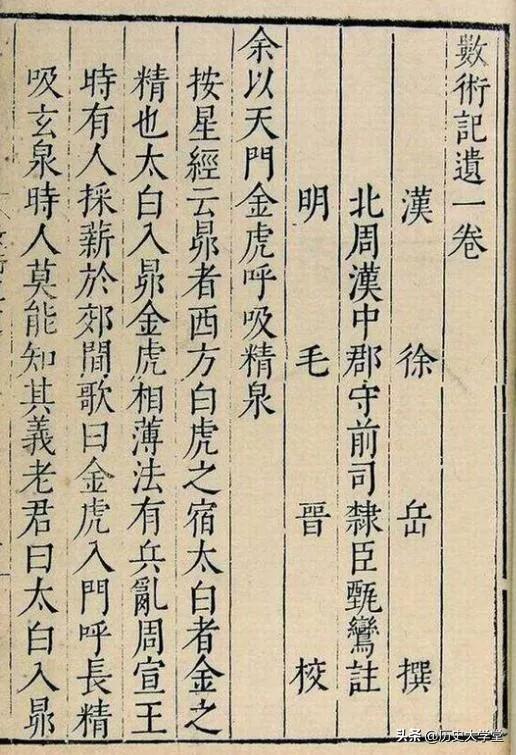 數術記遺一卷
漢徐岳撰
北周漢中郡守前司隸臣甄鸞註
明毛晉校
余以天門金虎呼吸精泉
按星經云昴者西方白虎之宿太白者金之
精也太白入昴金虎相薄法有兵亂周宣王
時有人採薪於郊間歌曰金虎入門呼長精
吸玄泉時人莫能知其義老君曰太白入昴
头条 @历史大学堂